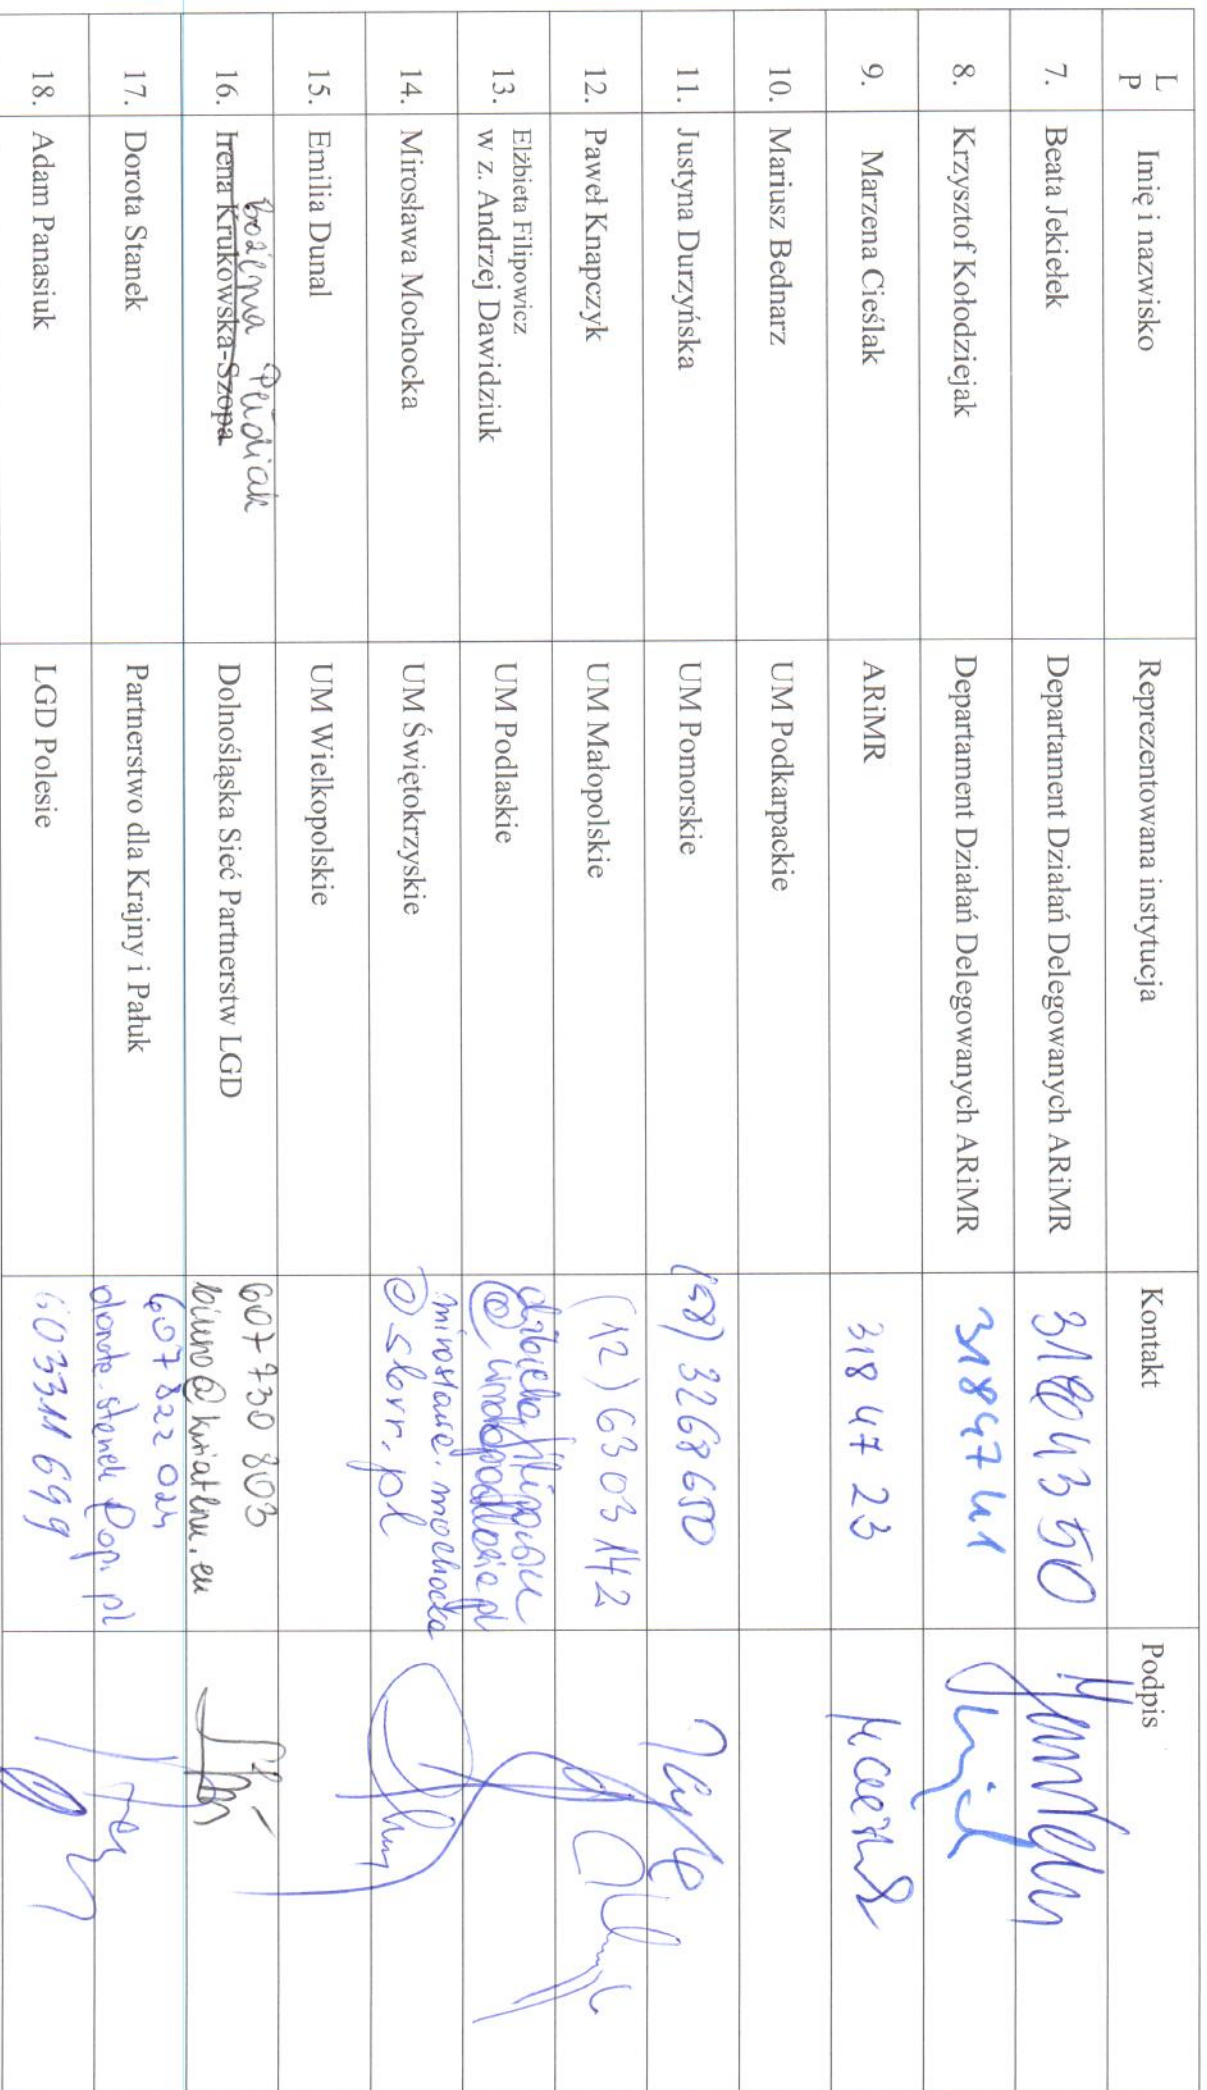 L P Imię i nazwisko Reprezentowana instytucja Kontakt Podpis
7. Beata Jekiełek Departament Działań Delegowanych ARiMR
8. Krzysztof Kołodziejak Departament Działań Delegowanych ARiMR 3184741
9. Marzena Cieślak ARiMR 318 47 23
10. Mariusz Bednarz UM Podkarpackie
11. Justyna Durzyńska UM Pomorskie (58) 3268650
12. Paweł Knapczyk UM Małopolskie (12) 63 03 142
13. Elżbieta Filipowicz
w z. Andrzej Dawidziuk UM Podlaskie
14. Mirosława Mochocka UM Świętokrzyskie mirosława.mochocka
15. Emilia Dunal UM Wielkopolskie
16. Bożena Irena Krukowska-Szopa Dolnośląska Sieć Partnerstw LGD 607 730 803
17. Dorota Stanek Partnerstwo dla Krajny i Pałuk 607 822 024
18. Adam Panasiuk LGD Polesie 603311 699